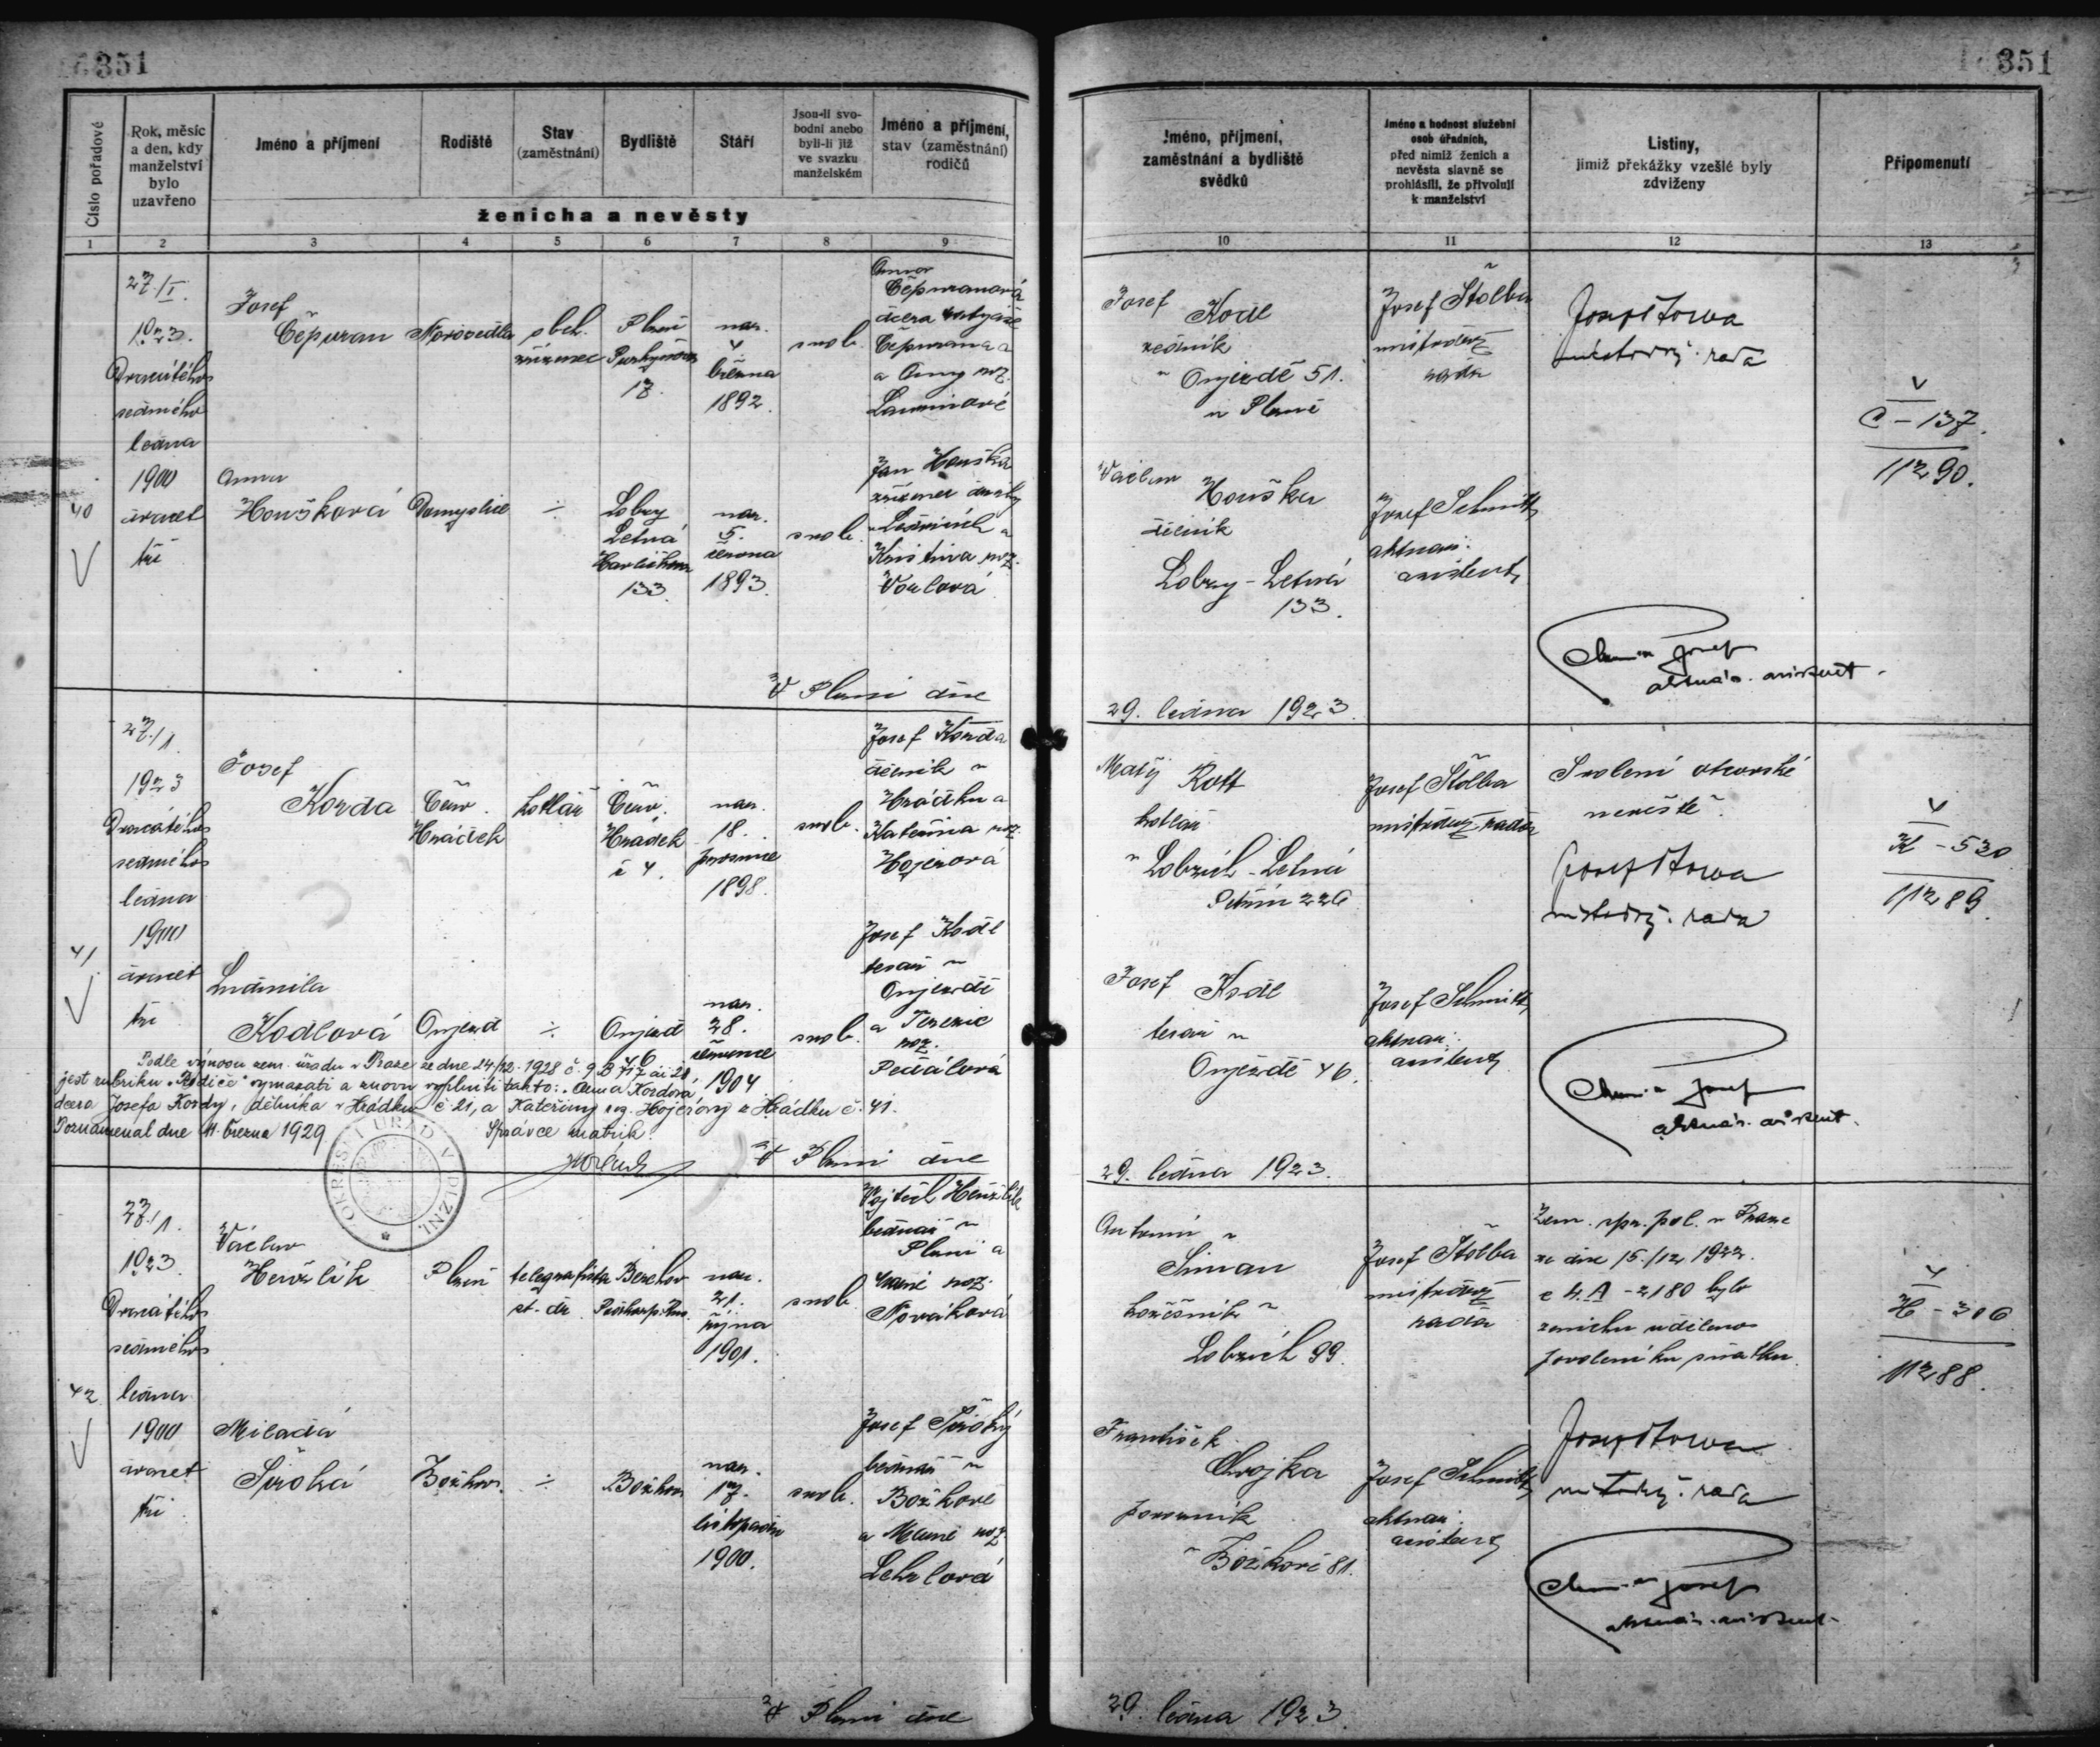 351
351
Číslo pořadové
Rok, měsíc a den, kdy manželství bylo uzavřeno
Jméno a příjmení
Rodiště
Stav (zaměstnání)
Bydliště
Stáří
Jsou-li svobodni anebo byli-li již ve svazku manželském
Jméno a příjmení, stav (zaměstnání) rodičů
ženicha a nevěsty
Jméno, příjmení, zaměstnání a bydliště svědků
Jméno a hodnost služební osob úředních, před nimiž ženich a nevěsta slavně se prohlásili, že přivolují k manželství
Listiny, jimiž překážky vzešlé byly zdviženy
Připomenutí
1 2 3 4 5 6 7 8 9 10 11 12 13
40
27./I.
1923.
Dvacátého
sedmého
ledna
1900
dvacet
tři
Josef
Čepuran
obch.
zřízenec
Plzeň
17.
nar.
4
března
1892.
svob.
Anna
Čepuranová
dcera
Čepurana a
a Anny roz.
Josef
Kodl
v Oujezdě 51.
u Plzně
Josef Štolba
místodrž
rada
místodrž. rada
C - 137.
11290.
Anna
Houšková
Domažlice
÷
Lobzy
Letná
133.
nar.
5.
června
1893.
svob.
Jan Houška
zřízenec dráhy
Václav
Houška
dělník
Lobzy - Letná
133.
Josef Schmitt
aktuar.
asistent
aktuár. asistent.
V Plzni dne
29. ledna 1923.
41
27./1.
1923
Dvacátého
sedmého
ledna
1900
dvacet
tři
Josef
Korda
Červ.
Hrádek
kotlář
Červ.
Hrádek
č 4.
nar.
18.
prosince
1898.
svob.
Josef Korda
dělník v
Hrádku a
Kateřina roz.
Hojerová
Matěj
Rott
kotlář
v Lobzích - Letná
Petřín 226
Josef Štolba
místodrž. rada
Svolení otcovské
nevěstě.
místodrž. rada
K - 530
11289.
Ludmila
Kodlová
Oujezd
÷
Oujezd
46
nar.
28.
července
1904
svob.
Josef Kodl
tesař v
Oujezdě
a Terezie
roz.
Josef
Kodl
tesař v
Oujezdě 46.
Josef Schmitt
aktuar.
asistent
aktuár. asistent.
Podle výnosu zem. úřadu v Praze ze dne 24/12. 1928 č. 9
jest rubriku „Rodiče" vymazati a znovu vyplniti takto: „Anna Kordová
dcera Josefa Kordy, dělníka v Hrádku č. 21, a Kateřiny roz. Hojerovy z Hrádku č. 41.
Poznamenal dne 11. března 1929
Správce matrik.
OKRESNÍ ÚŘAD V PLZNI
V Plzni dne
29. ledna 1923.
42
27./1.
1923.
Dvacátého
sedmého
ledna
1900
dvacet
tři
Václav
Henžlík
Plzeň
telegrafista
st. dr.
nar.
21.
října
1901.
svob.
Vojtěch Henžlík
bednář v
Plzni a
Marie roz.
Nováková
Antonín
Šiman
Lobzích 99.
Josef Štolba
místodrž
rada
Zem. spr. pol. v Praze
ze dne 15./12 1922.
č 4. A - 2180 bylo
ženichu uděleno
povolení ku sňatku.
místodrž. rada
H - 306
11288.
Milada
Široká
Božkov
÷
Božkov
nar.
17.
listopadu
1900.
svob.
Josef Široký
bednář v
Božkově
a Marie roz.
František
Chvojka
pomocník
v Božkově 81.
Josef Schmitt
aktuar.
asistent
aktuár. asistent.
V Plzni dne
29. ledna 1923.